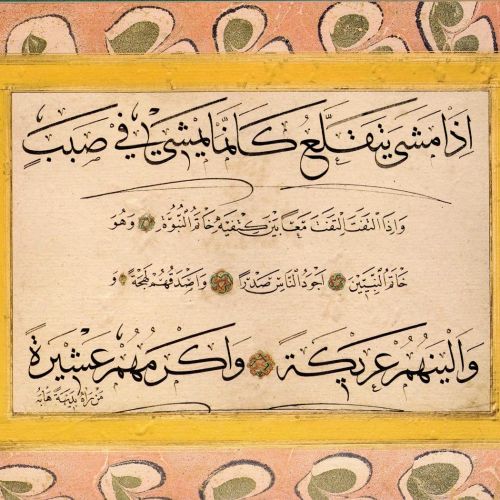 اِذَا مَشٰى يَتَقَلَّعُ كَاَنَّمَا يَمْشِي فِي صَبَبٍ
وَاِذَا الْتَفَتَ اِلْتَفَتَ مَعًا بَيْنَ كَتِفَيْهِ خَاتَمُ النُّبُوَّةِ وَهُوَ
خَاتَمُ النَّبِيّٖينَ اَجْوَدُ النَّاسِ صَدْرًا وَاَصْدَقُهُمْ لَهْجَةً وَ
وَاَلْيَنُهُمْ عَرِيكَةً وَاَكْرَمُهُمْ عَشِيرَةً
مَنْ رَاٰهُ بَدِيهَةً هَابَهُ